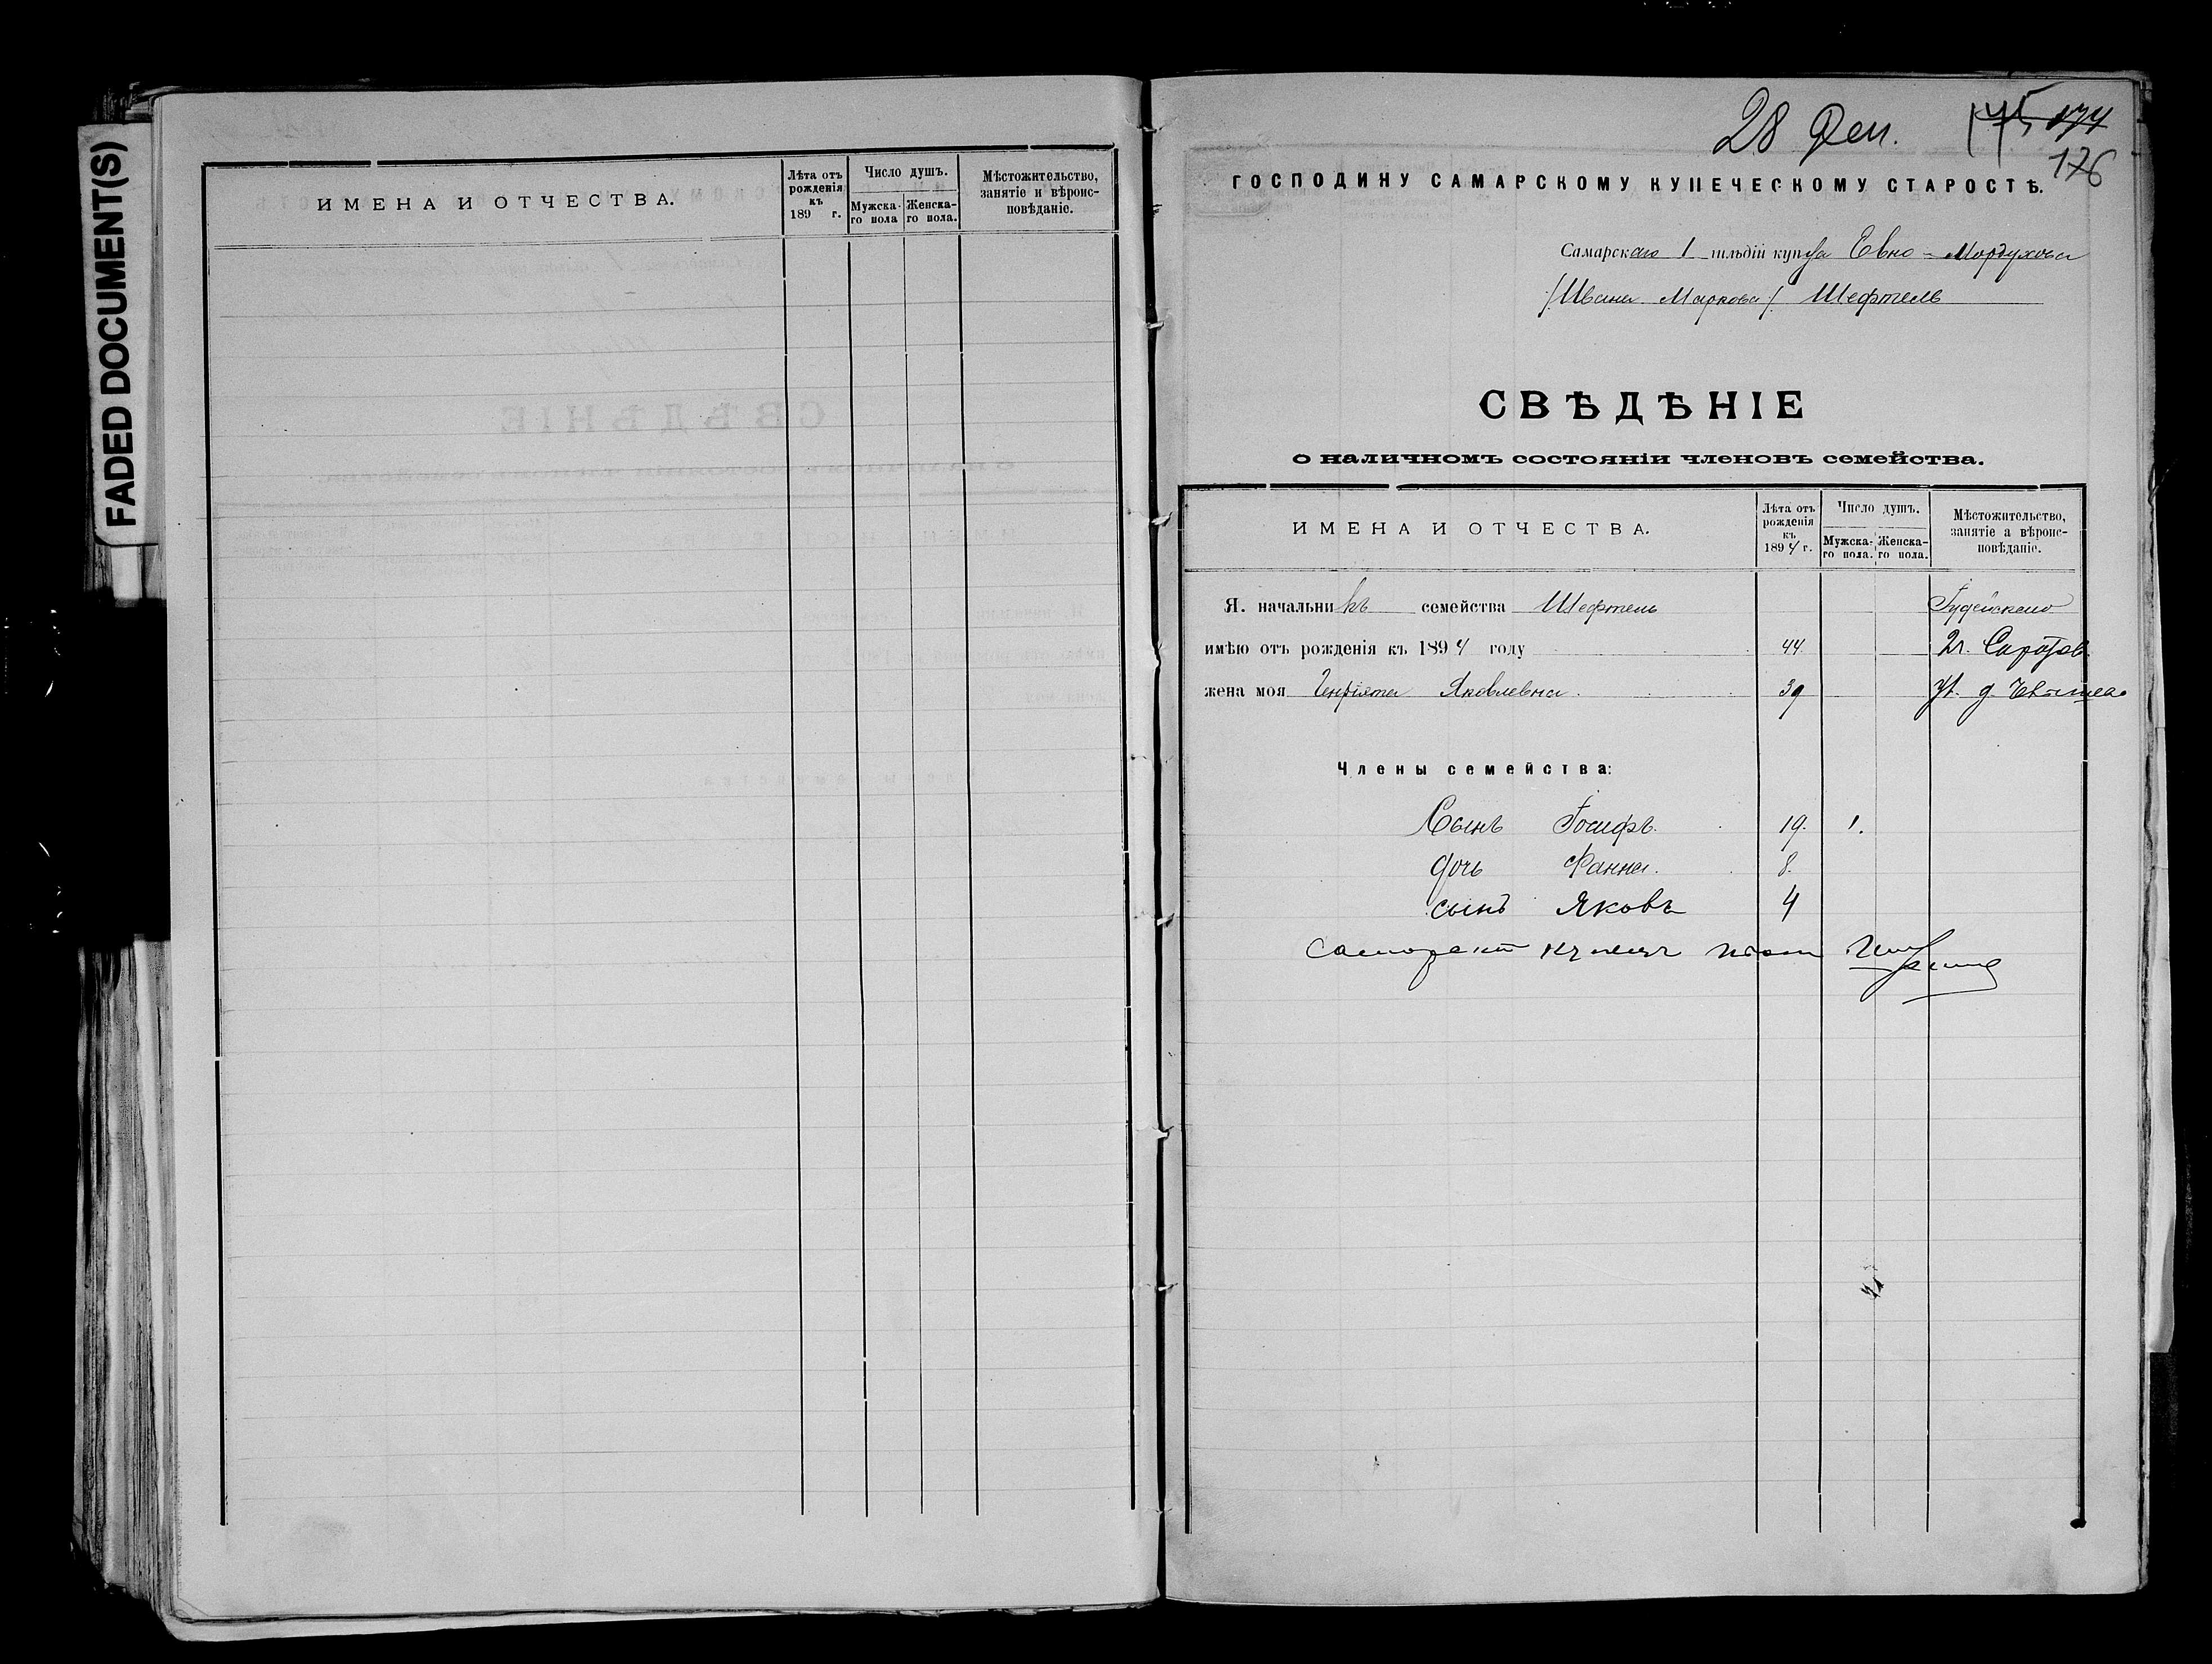 FADED DOCUMENT(S)
ИМЕНА И ОТЧЕСТВА.
Лѣта отъ рожденія къ 189 г.
Число душъ.
Мужска-го пола
Женска-го пола.
Мѣстожительство, занятіе и вѣроис-повѣданіе.
28 Дек.
175 174
176
ГОСПОДИНУ САМАРСКОМУ КУПЕЧЕСКОМУ СТАРОСТѢ.
Самарскаго 1 гильдіи купца Евно-Мордухова
/Ивана Маркова/ Шефтель
СВѢДѢНІЕ
о наличномъ состояніи членовъ семейства.
ИМЕНА И ОТЧЕСТВА.
Лѣта отъ рожденія къ 1894 г.
Число душъ.
Мужска-го пола.
Женска-го пола.
Мѣстожительство, занятіе а вѣроис-повѣданіе.
Я. начальникъ семейства Шефтель Іудейскаго
имѣю отъ рожденія къ 1894 году 44
жена моя Генріята Яковлевна. 39
Члены семейства:
Сынъ Іосифъ. 19. 1.
дочь Фанна. 8.
сынъ Яковъ 4